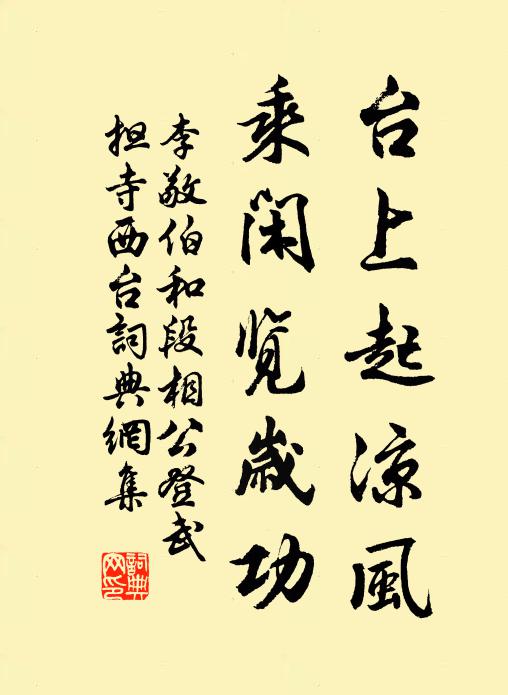 台上起凉風
乘闲览歲功
李敬伯和段相公登武
担寺西台詞典網集
詞典网印